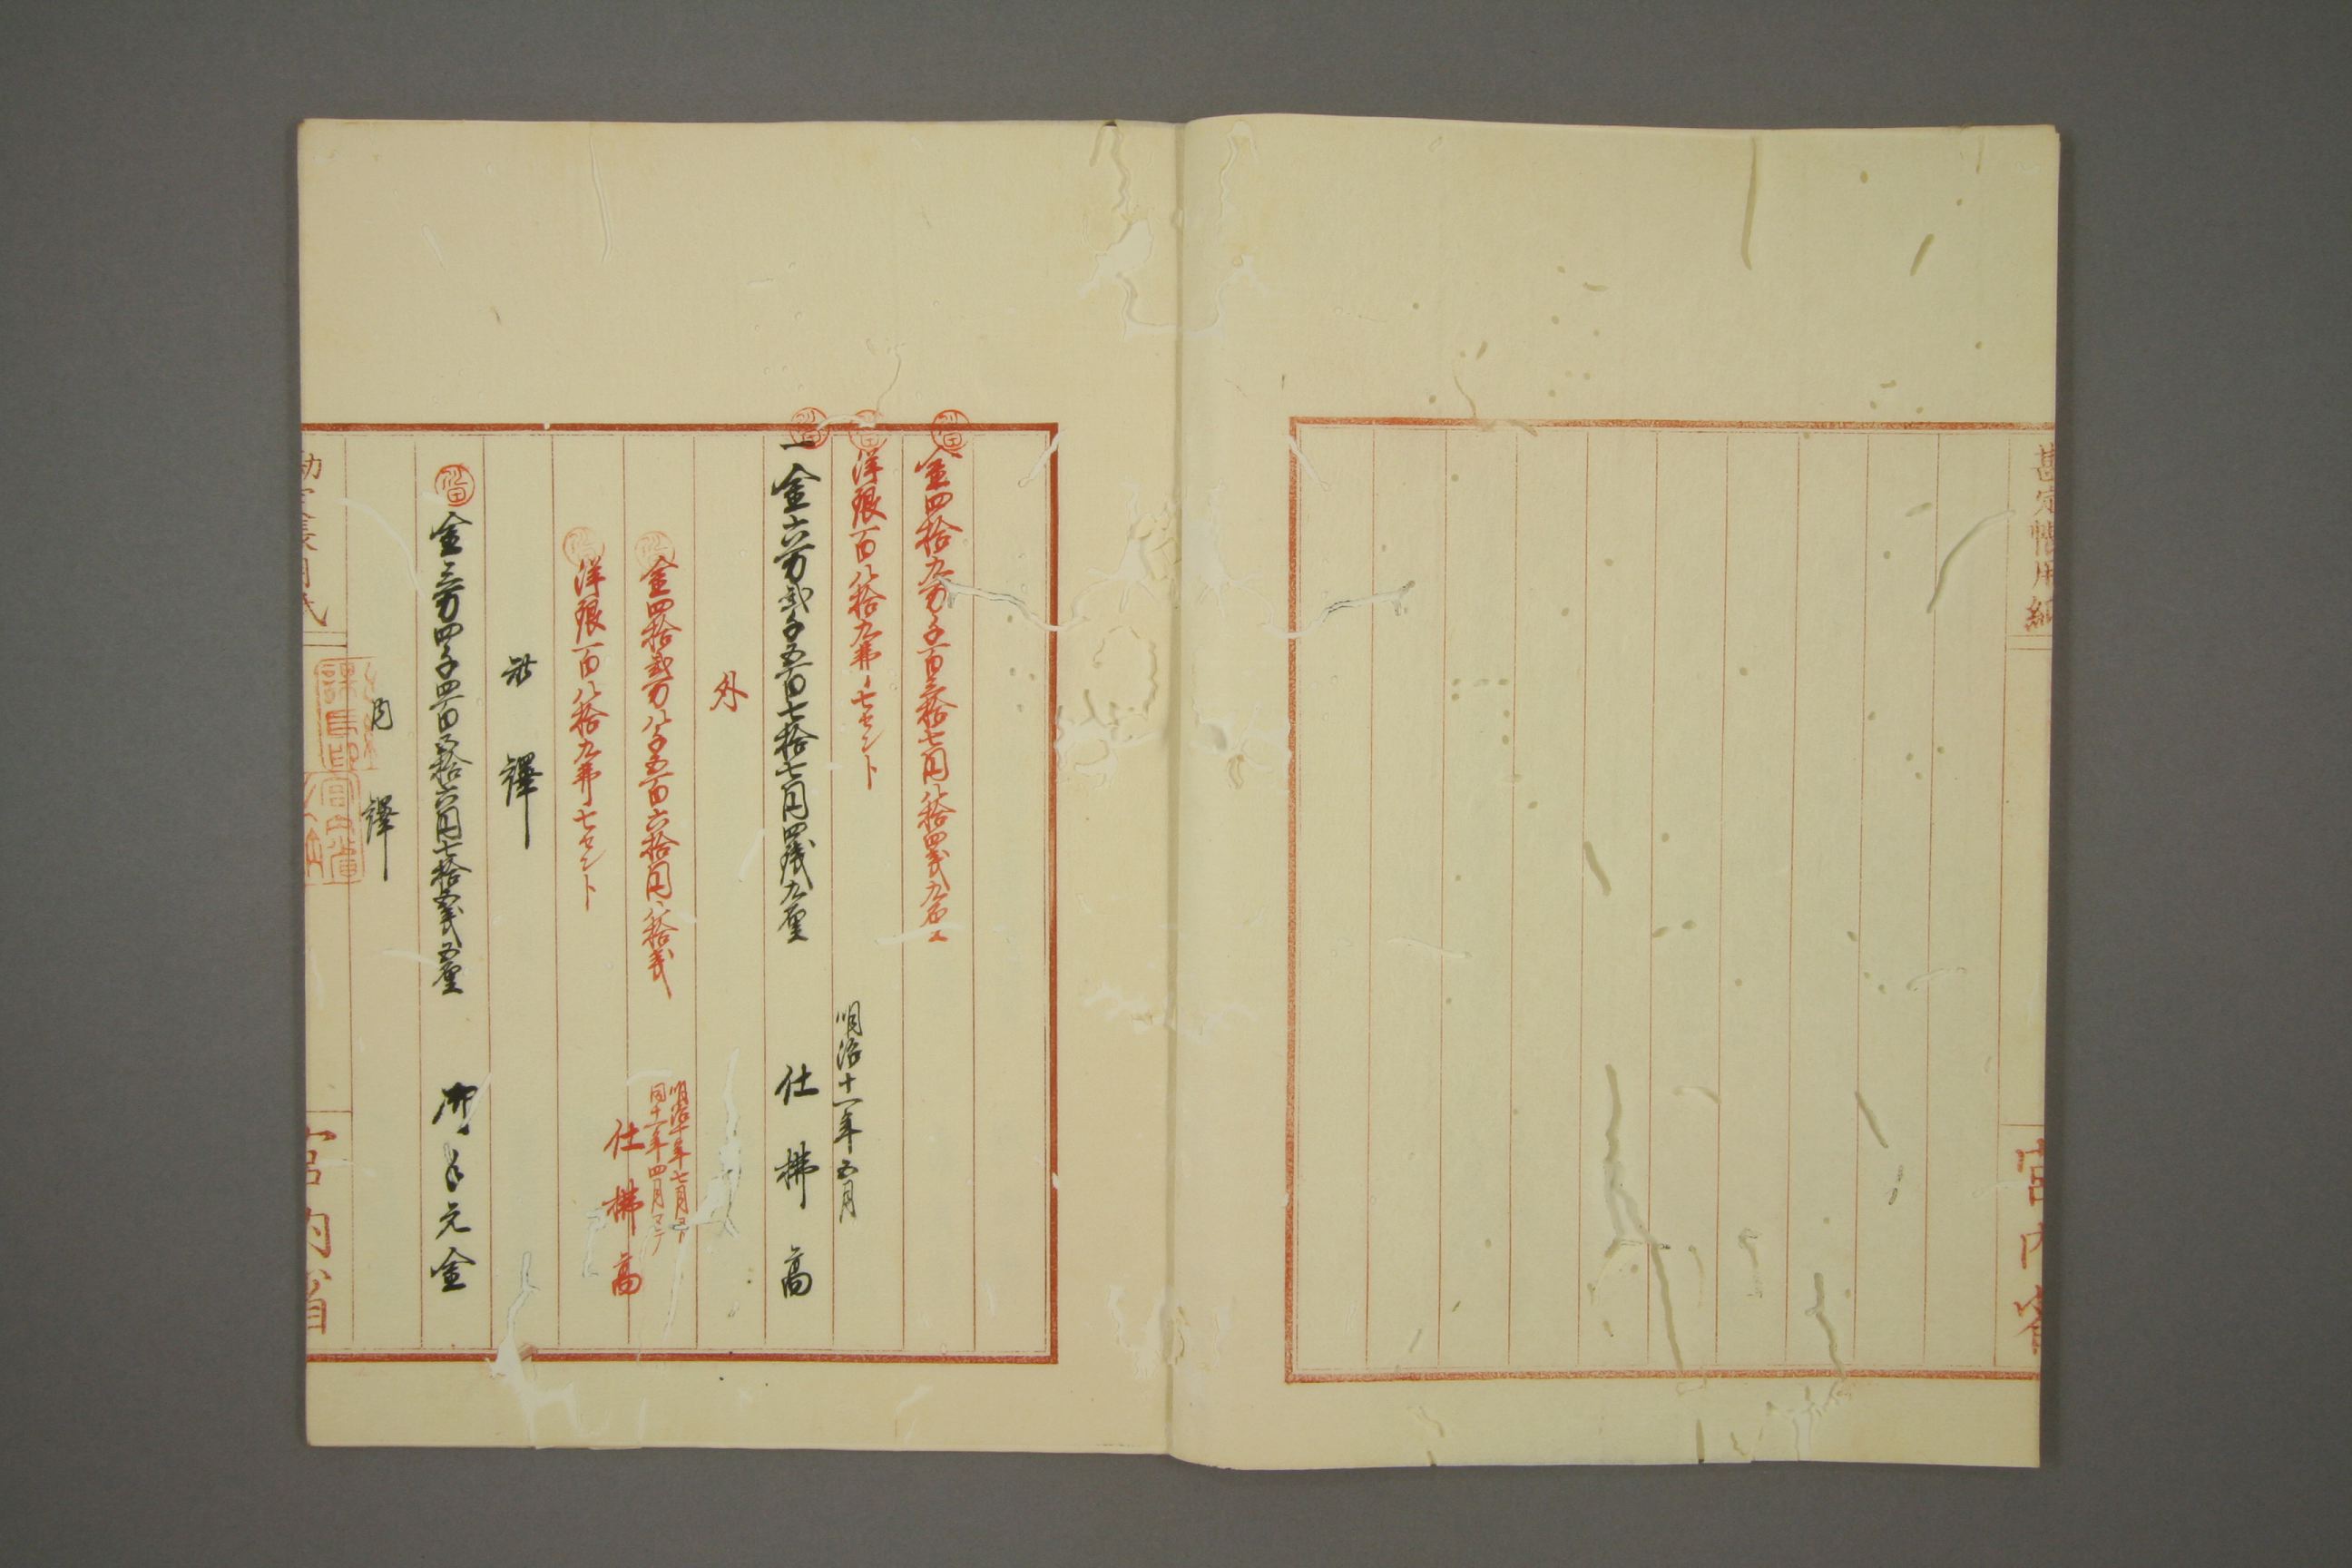 勘定帳用紙
宮内省
金四拾九万千百三拾七円八拾四銭九厘
洋銀百八拾九弗七セント
明治十一年五月
一金六万弐千五百七拾七円四銭九厘 仕拂高
外
明治十年七月ヨリ
同十一年四月マテ
金四拾弐万八千五百六拾円八拾銭
仕拂高
洋銀百八拾九弗七セント
此譯
金三万四千四百五拾六円七拾 銭五厘 御手元金
内譯
宮内省